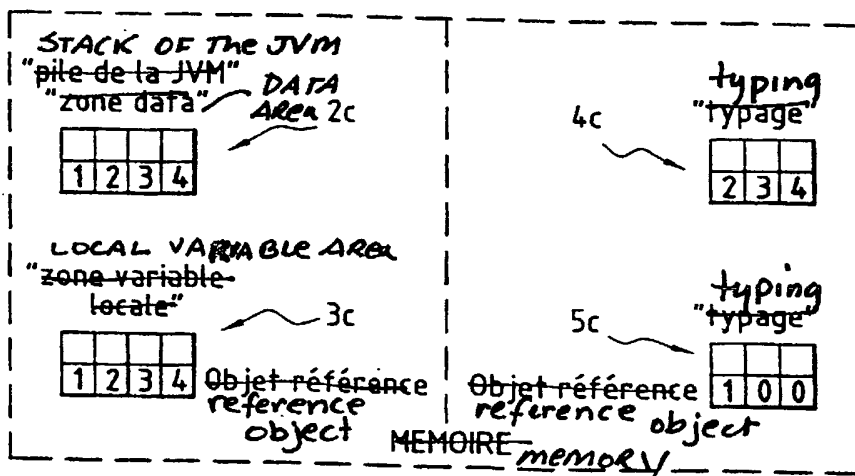 STACK OF The JVM
"pile de la JVM"
"zone data" DATA
AREA 2c
1 2 3 4
LOCAL VARIABLE AREA
"zone variable
locale"
3c
1 2 3 4 Objet référence
reference
object
typing
"typage"
4c
2 3 4
typing
"typage"
5c
1 0 0
Objet référence
reference object
MEMOIRE memory